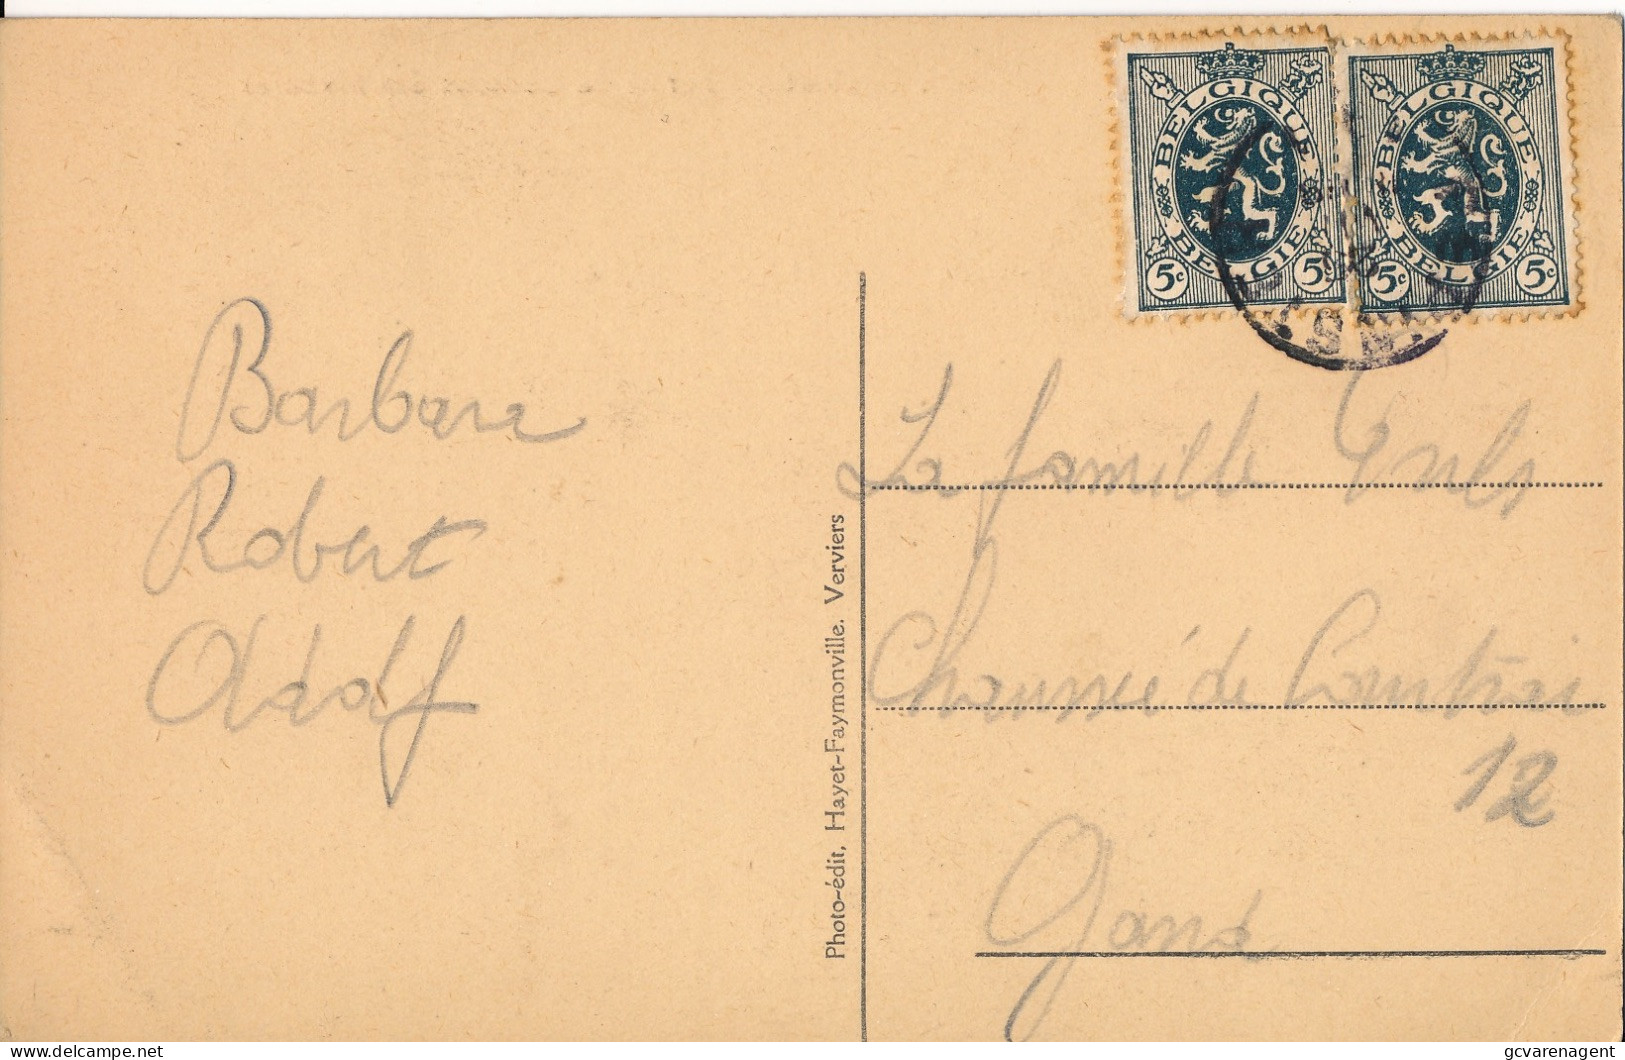 BELGIQUE
BELGIE
5c 5c
BELGIQUE
BELGIE
5c 5c
Barbara
Robert
Adolf
Photo-édit, Hayet-Faymonville. Verviers
La famille
Chaussée de Courtrai
12
Gand
gcvarenagent
delcampe.net